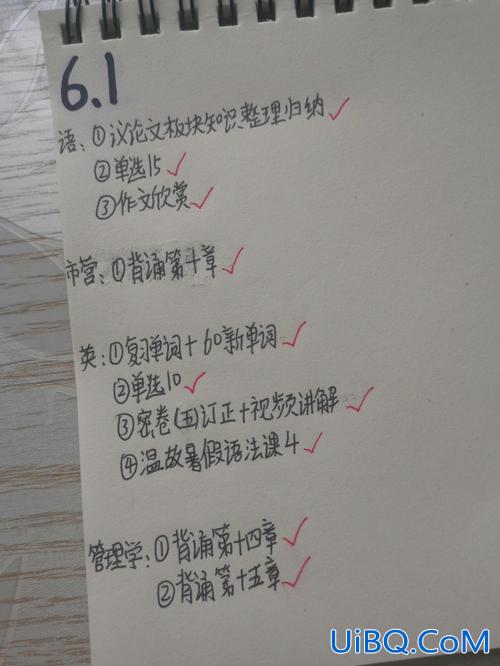 6.1
语:①议论文板块知识整理归纳✓
②单选15✓
③作文欣赏✓
市营:①背诵第十章✓
英:①复习单词+60新单词✓
②单选10✓
③密卷(五)订正+视频讲解✓
④温故暑假语法课4✓
管理学:①背诵第十四章✓
②背诵第十五章✓
UiBQ.CoM